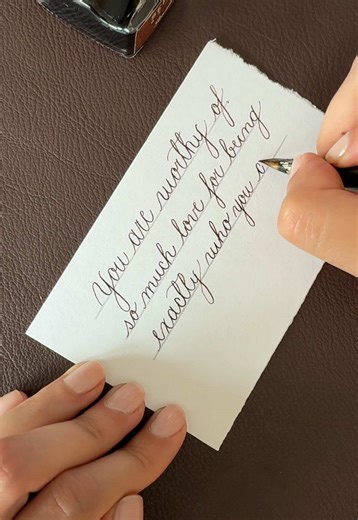 You are worthy of
so much love for being
exactly who you a